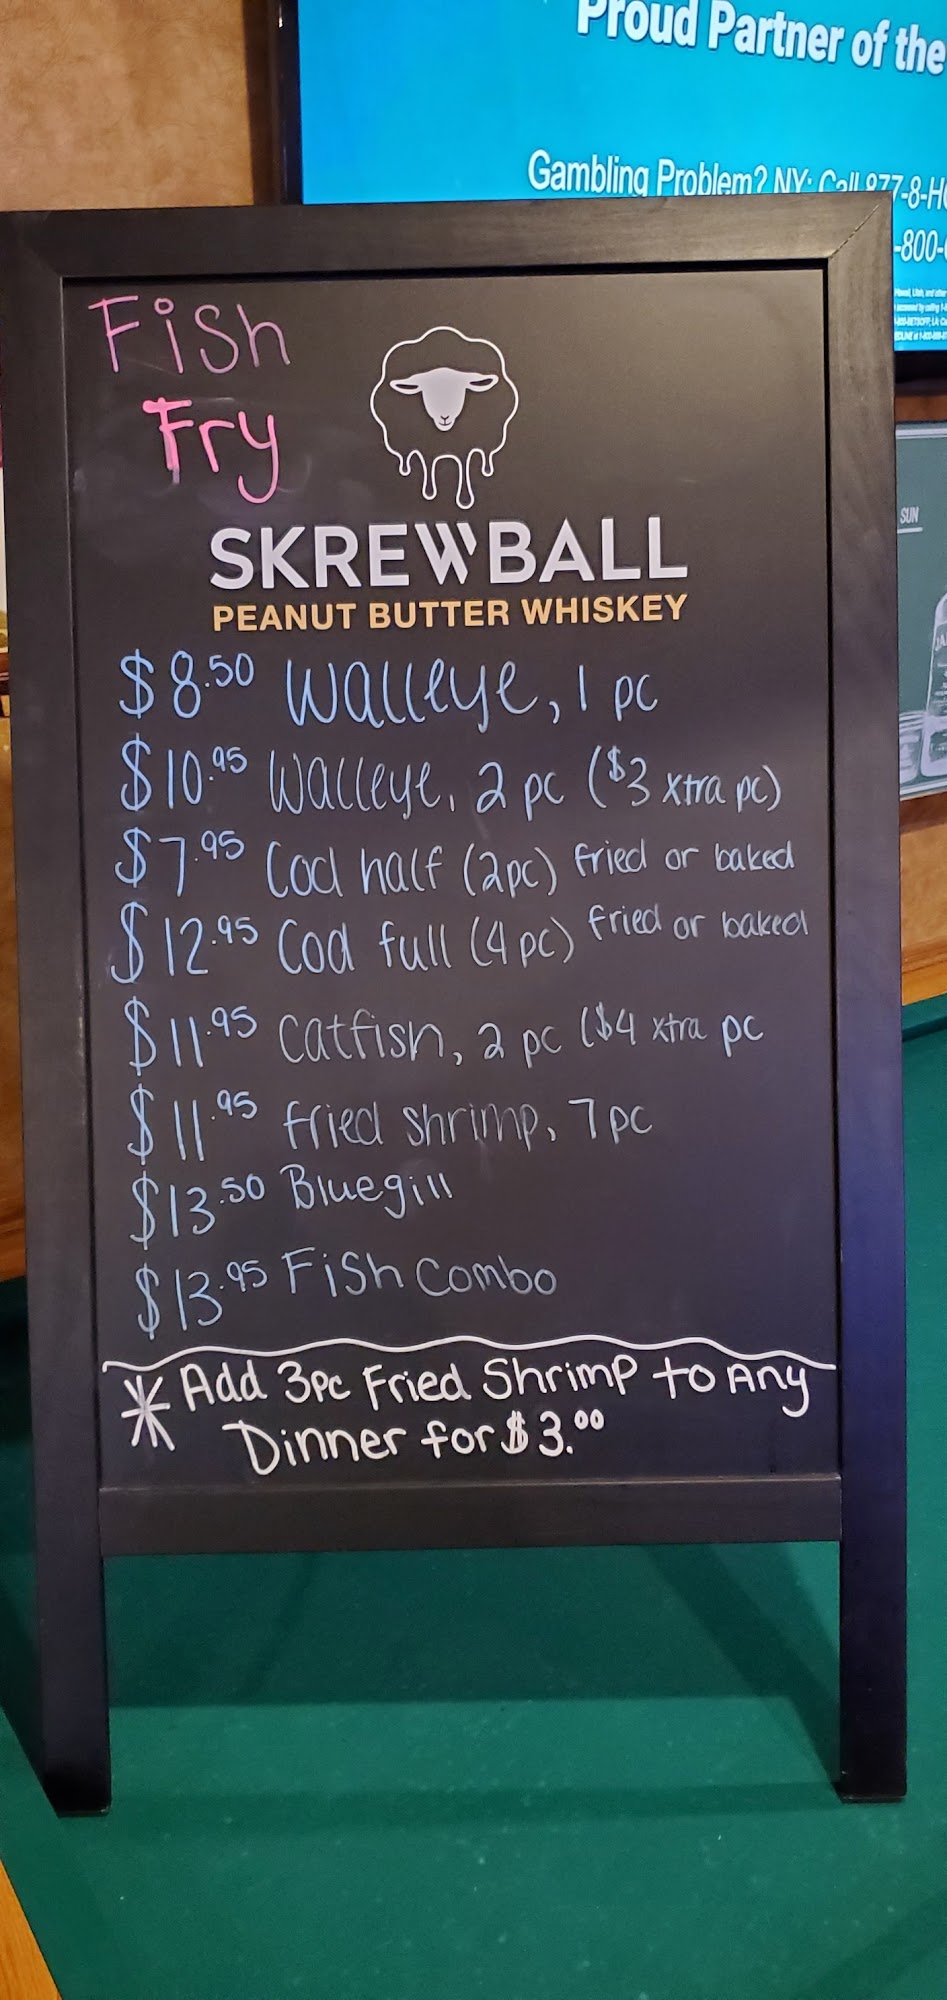 Proud Partner of the
Gambling Problem? NY: Call 877-8-H
-800-
Fish
Fry
SKREWBALL
PEANUT BUTTER WHISKEY
$8.50 Walleye, 1 pc
$10.95 Walleye, 2 pc ($3 xtra pc)
$7.95 Cod half (2pc) fried or baked
$12.95 Cod full (4 pc) fried or baked
$11.95 Catfish, 2 pc ($4 xtra pc
$11.95 fried shrimp, 7 pc
$13.50 Bluegill
$13.95 Fish Combo
* Add 3pc Fried Shrimp to Any
Dinner for $3.00
SUN